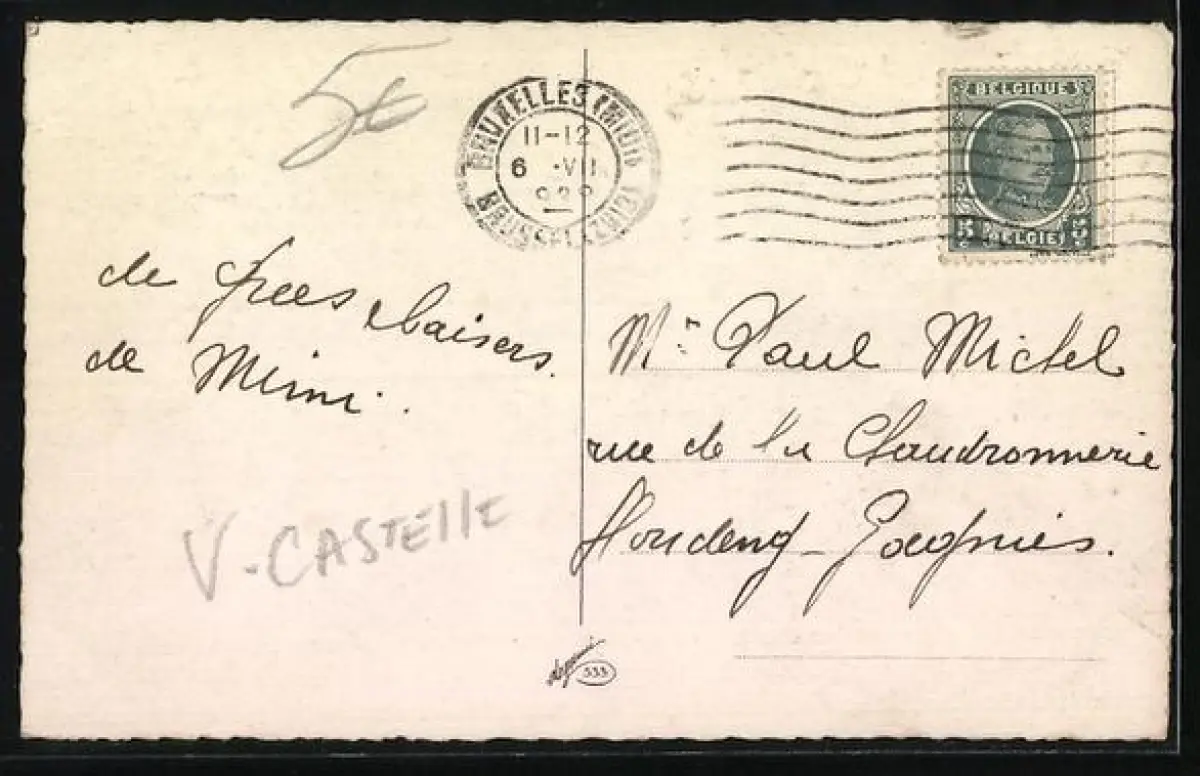 5c
BRUXELLES (MIDI)
11-12
6 VII
BRUSSEL (ZUID)
BELGIQUE
5 BELGIË 5
de grees baisers
de Mimi.
Mr Paul Michel
rue de la Chaudronnerie
Houdeng-Goegnies.
V. CASTEllE